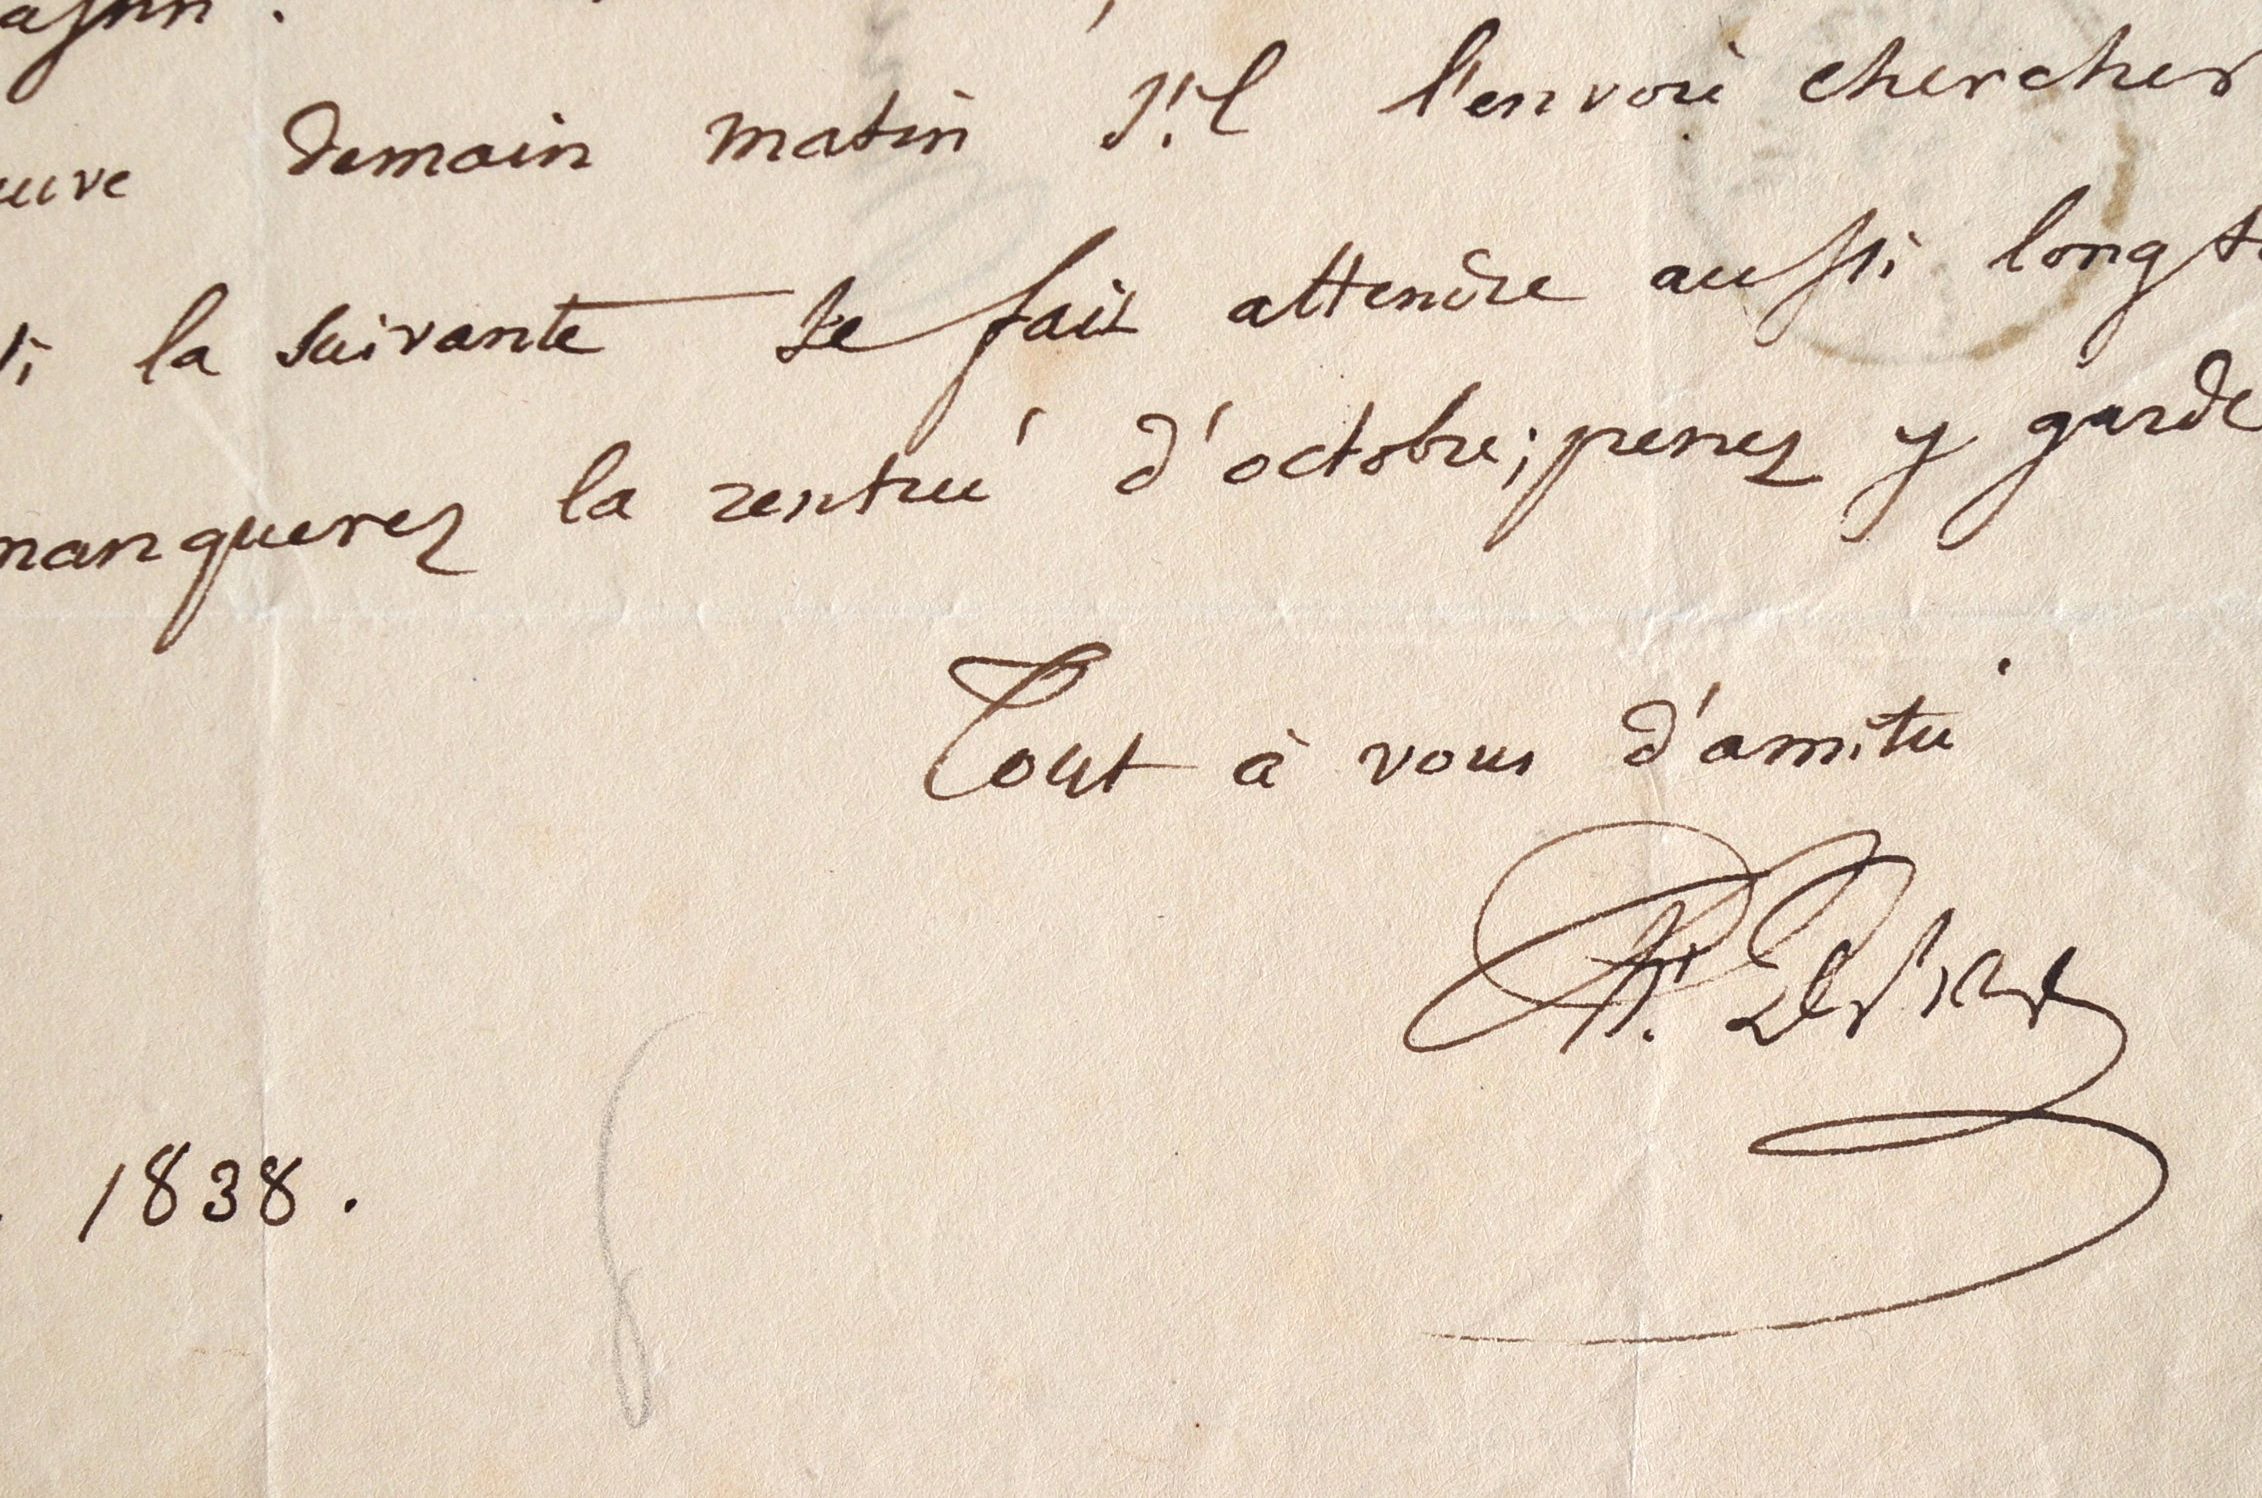 demain matin s'il l'envoie chercher
si la suivante se fait attendre aussi longt
manquerez la rentrée d'octobre; prenez y garde
Tout à vous d'amitié
1838.